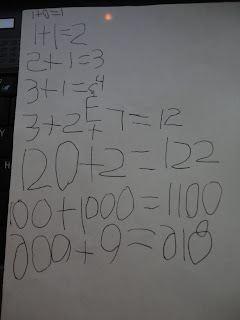 1+0=1
1+1=2
2+1=3
3+1=4
3+2+7=12
120+2=122
100+1000=1100
200+9=210